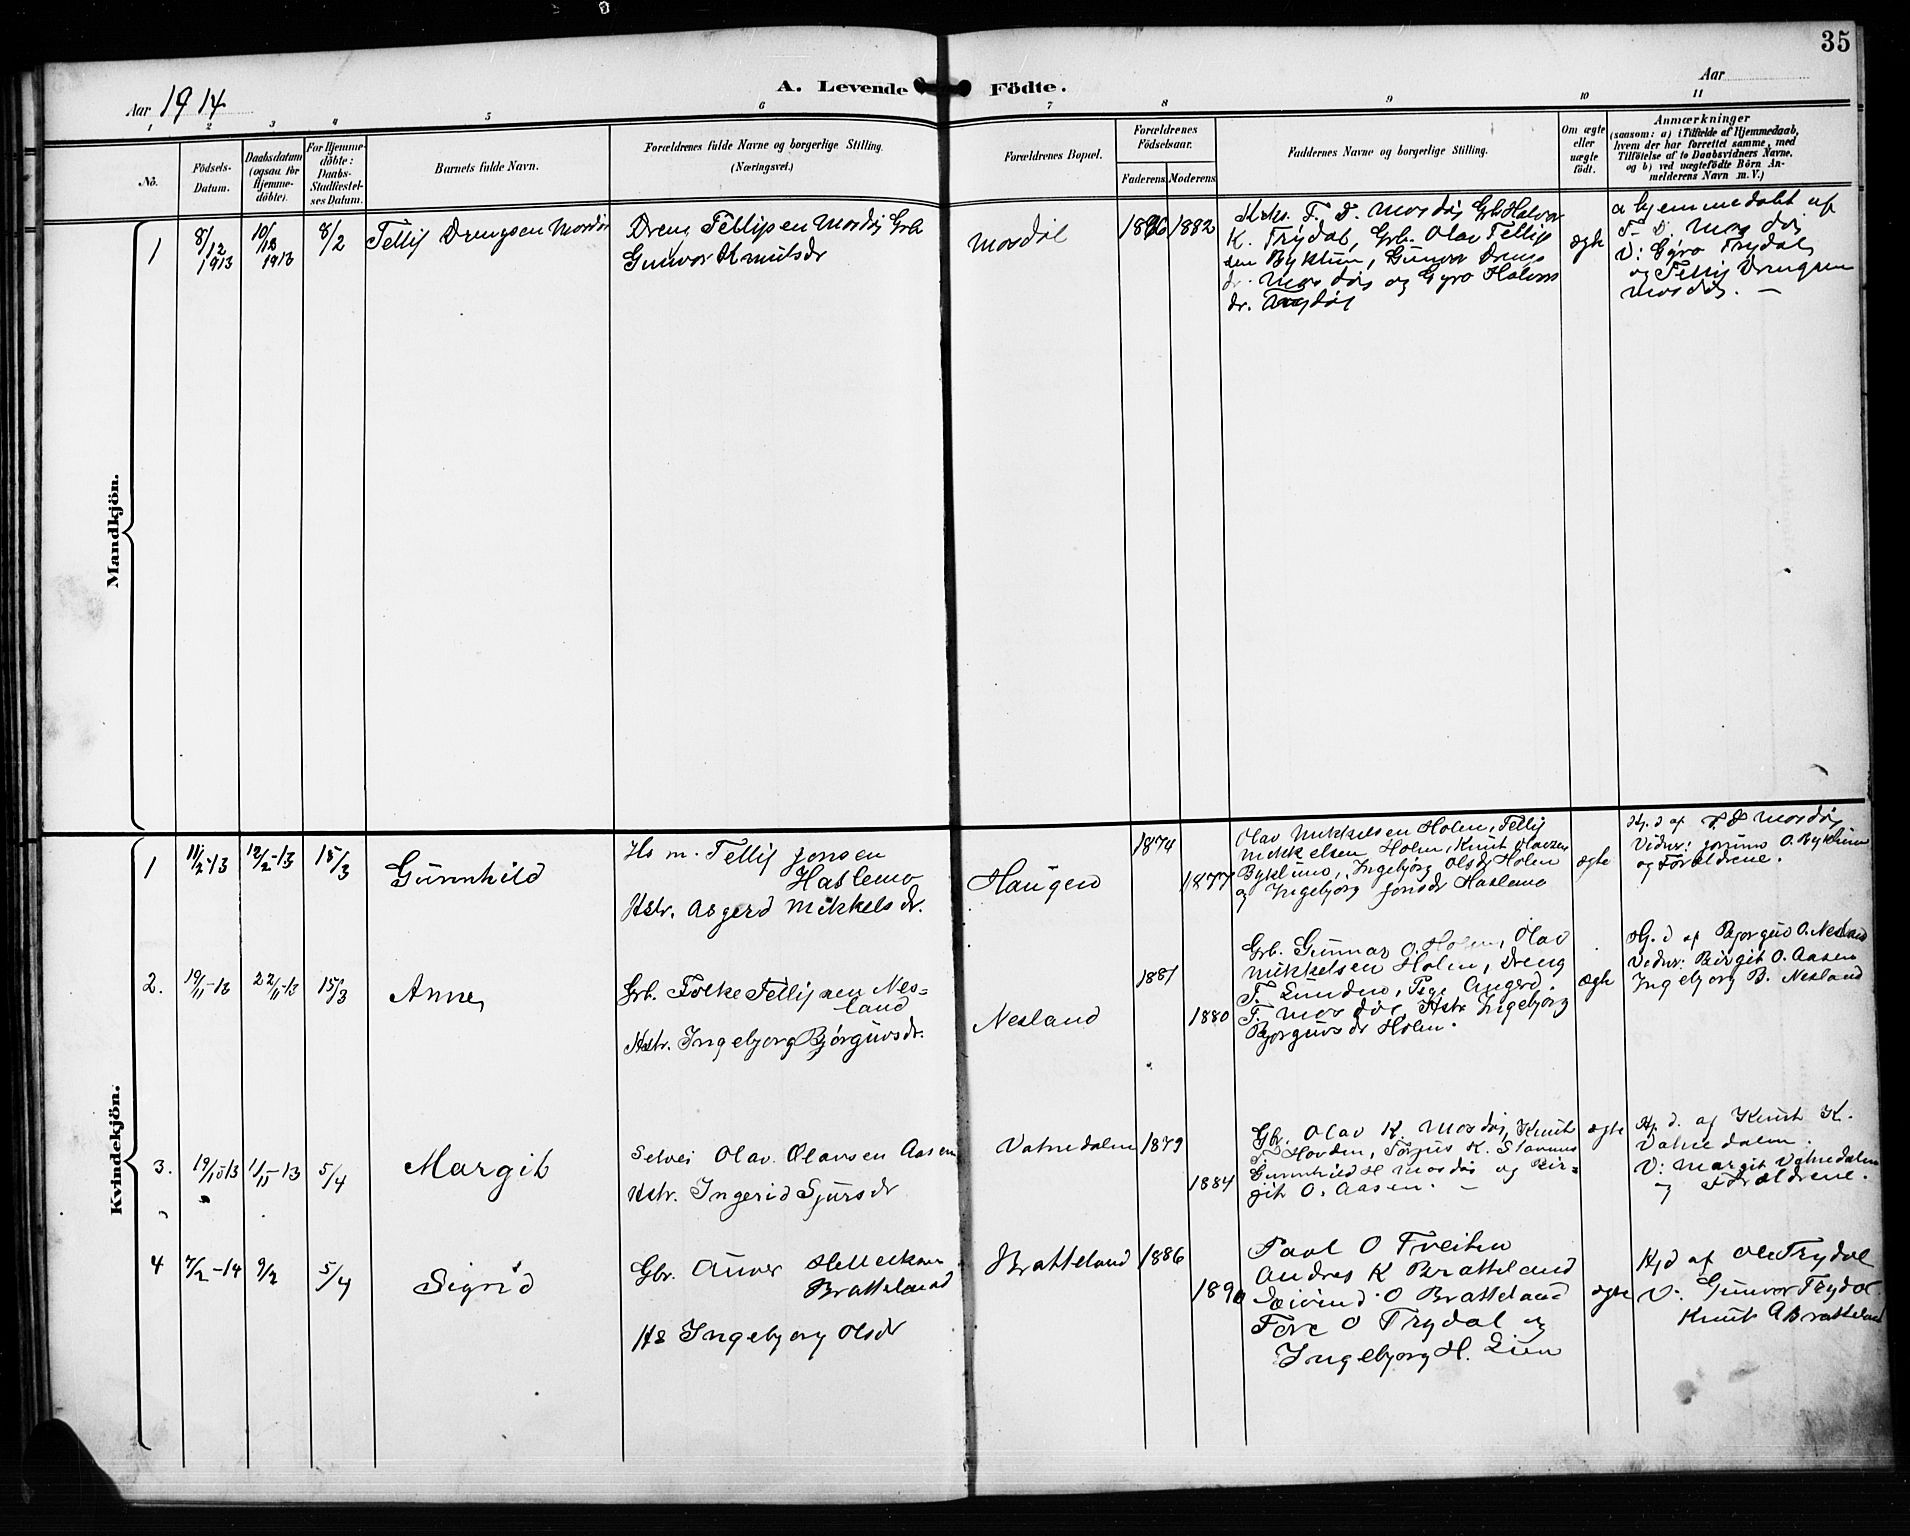 35
Aar 1914
A. Levende Födte.
Aar
1 2 3 4 5 6 7 8 9 10 11
No.
Födsels-
Datum.
Daabsdatum
(ogsaa for
Hjemme-
döbte).
For Hjemme-
döbte:
Daabs-
Stadfæstel-
ses Datum.
Barnets fulde Navn.
Forældrenes fulde Navne og borgerlige Stilling.
(Næringsvei.)
Forældrenes Bopæl.
Forældrenes
Födselsaar.
Faderens. Moderens.
Faddernes Navne og borgerlige Stilling.
Om ægte
eller
uægte
födt.
Anmærkninger
(saasom: a) i Tilfælde af Hjemmedaab,
hvem der har forrettet samme, med
Tilföielse af to Daabsvidners Navne.
og b) ved uægtefödte Börn An-
melderens Navn m. V.)
Mandkjön.
1
8/12
1913
10/12
1913
8/2
Tellif Drengsen Mosdøl
Dreng Tellifsen Mosdøl Grb
Gunvor Knutsdr
Mosdøl
1882
Kirks. T. D. Mosdøl Grb Halvor
K. Trydal, Grb. Olav Tellifs
sen Byklum, Gunvor Drengs
dr. Mosdøl og Gyro Halvors
dr. Trydøl
ægte
a hjemmedøbt af
T. D. Mosdøl
V: Gyro Trydal
og Tellif Drengsen
Mosdøl. —
Kvindekjön.
1
11/2-13
12/2-13
15/3
Gunnhild
Hs m. Tellif Jonsen
Haslemo
Hstr. Asgerd Mikkelsdr.
Haugen
1874
1877
Olav Mikkelsen Holen, Tellif
Mikkelsen Holen, Knut Olavsen
Byklum, Ingebjørg Olsdr Holen
og Ingebjorg Jonsdr Haslemo
ægte
Hj. d af T. D Mosdøl
Vidner: Jorunn O. Byklum
og Forældrene.
2.
19/11-13
22/11-13
15/3
Anne
Grb. Folke Tellifsen Nes=
land
Hstr. Ingebjorg Bjørguvsdr.
Nesland
1881
1880
Grb. Gunnar O. Holen, Olav
Mikkelsen Holen, Dreng
T. Lunden, Pige Angerd
T. Mosdøl, Hstr Ingebjorg
Bjorguvsdr Holen.
ægte
Hj. d af Bjorguv O. Nesland
Vidner: Birgit O. Aasen
Ingebjorg B. Nesland
3.
5/4
Margit
Selvei Olav Olavsen Aasen
Hstr. Ingerid Sjursdr
Vatnedalen
1879
1884
Gbr. Olav K. Mosdøl, Knut
T. Hovden, Torjus K. Stavnes
Gunnhild H Mosdøl og Bir=
git O. Aasen. —
ægte
Hj. d. af Knut K.
Vatnedalen.
V: Margit Vatnedalen
og Forældrene.
4
7/2-14
9/2
5/4
Sigrid
Gbr. Anver
Bratteland
Hs Ingebjorg Olsdr
Bratteland
1886
1890
Paul O Treiten
Andres K Bratteland
Eivind O Bratteland
Tore O Trydal og
Ingebjorg H. Lien
ægte
Hjd af Ole Trydal
V: Gunvor Trydal
Knut A Bratteland